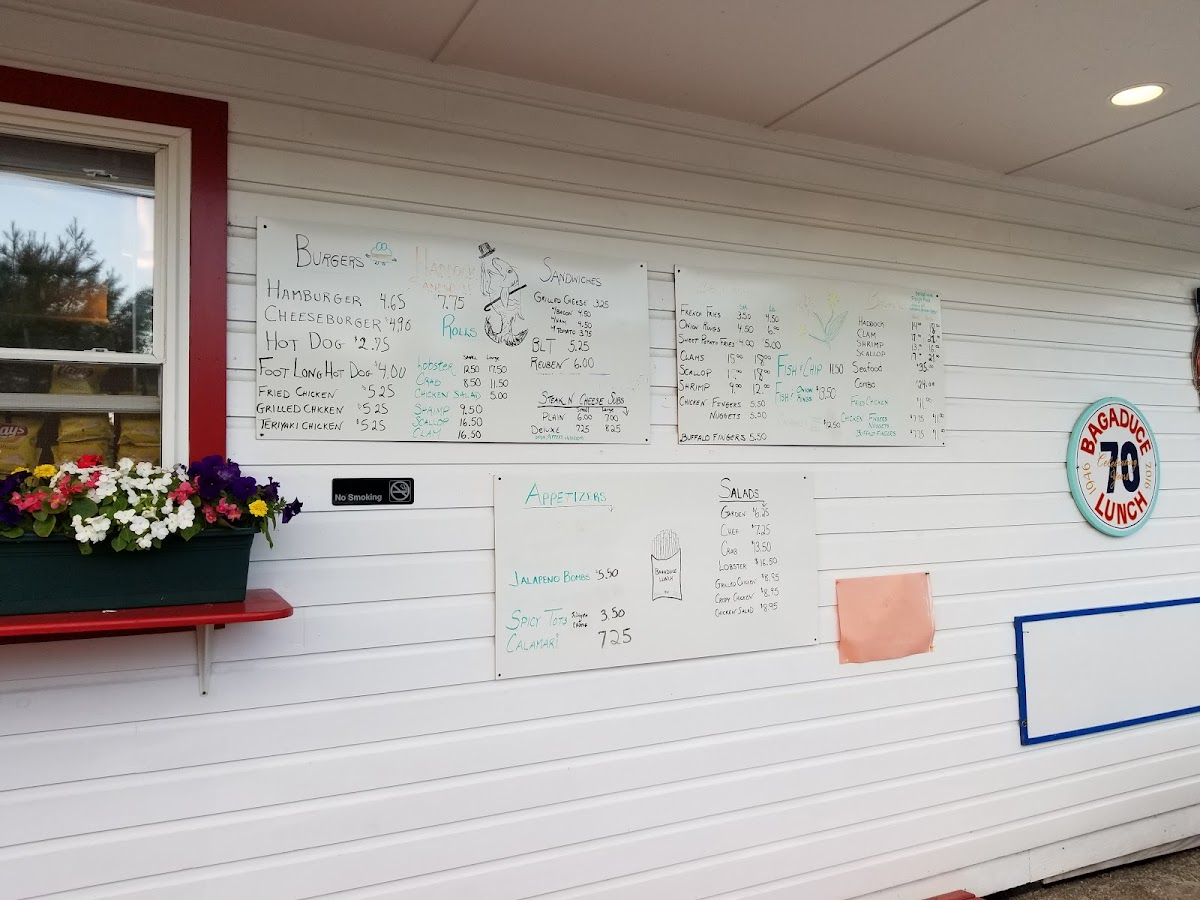 BURGERS
HAMBURGER 4.65
CHEESEBURGER $4.90
HOT DOG $2.75
FOOT LONG HOT DOG $4.00
FRIED CHICKEN $5.25
GRILLED CHICKEN $5.25
TERIYAKI CHICKEN $5.25
HADDOCK
SANDWICH
$7.75
ROLLS
Small Large
LOBSTER 12.50 17.50
CRAB 8.50 11.50
CHICKEN SALAD 5.00
SHRIMP 9.50
SCALLOP 16.50
CLAM 16.50
SANDWICHES
GRILLED CHEESE 3.25
W/BACON 4.50
W/HAM 4.50
W/TOMATO 3.75
BLT 5.25
REUBEN 6.00
STEAK N CHEESE SUBS
Small Large
PLAIN 6.00 7.00
DELUXE 7.25 8.25
SM. LG.
FRENCH FRIES 3.50 4.50
ONION RINGS 4.50 6.00
SWEET POTATO FRIES 4.00 5.00
CLAMS 15.00 18.00
SCALLOP 18.00
SHRIMP 9.00 12.00
CHICKEN FINGERS 5.50
NUGGETS 5.50
BUFFALO FINGERS 5.50
FISH & CHIP 11.50
FISH & ONION RINGS $13.50
$2.50
HADDOCK
CLAM
SHRIMP
SCALLOP
SEAFOOD $35.00
COMBO $24.00
FRIED CHICKEN
CHICKEN FINGERS
NUGGETS
BUFFALO FINGERS
No Smoking
APPETIZERS
JALAPENO BOMBS $5.50
SPICY TOTS 3.50
CALAMARI 7.25
BAGADUCE
LUNCH
SALADS
GARDEN $6.25
CHEF $7.25
CRAB $13.50
LOBSTER $16.50
GRILLED CHICKEN $8.95
CRISPY CHICKEN $8.95
CHICKEN SALAD $8.95
BAGADUCE
Celebrating
1946 70 2016
Years
LUNCH